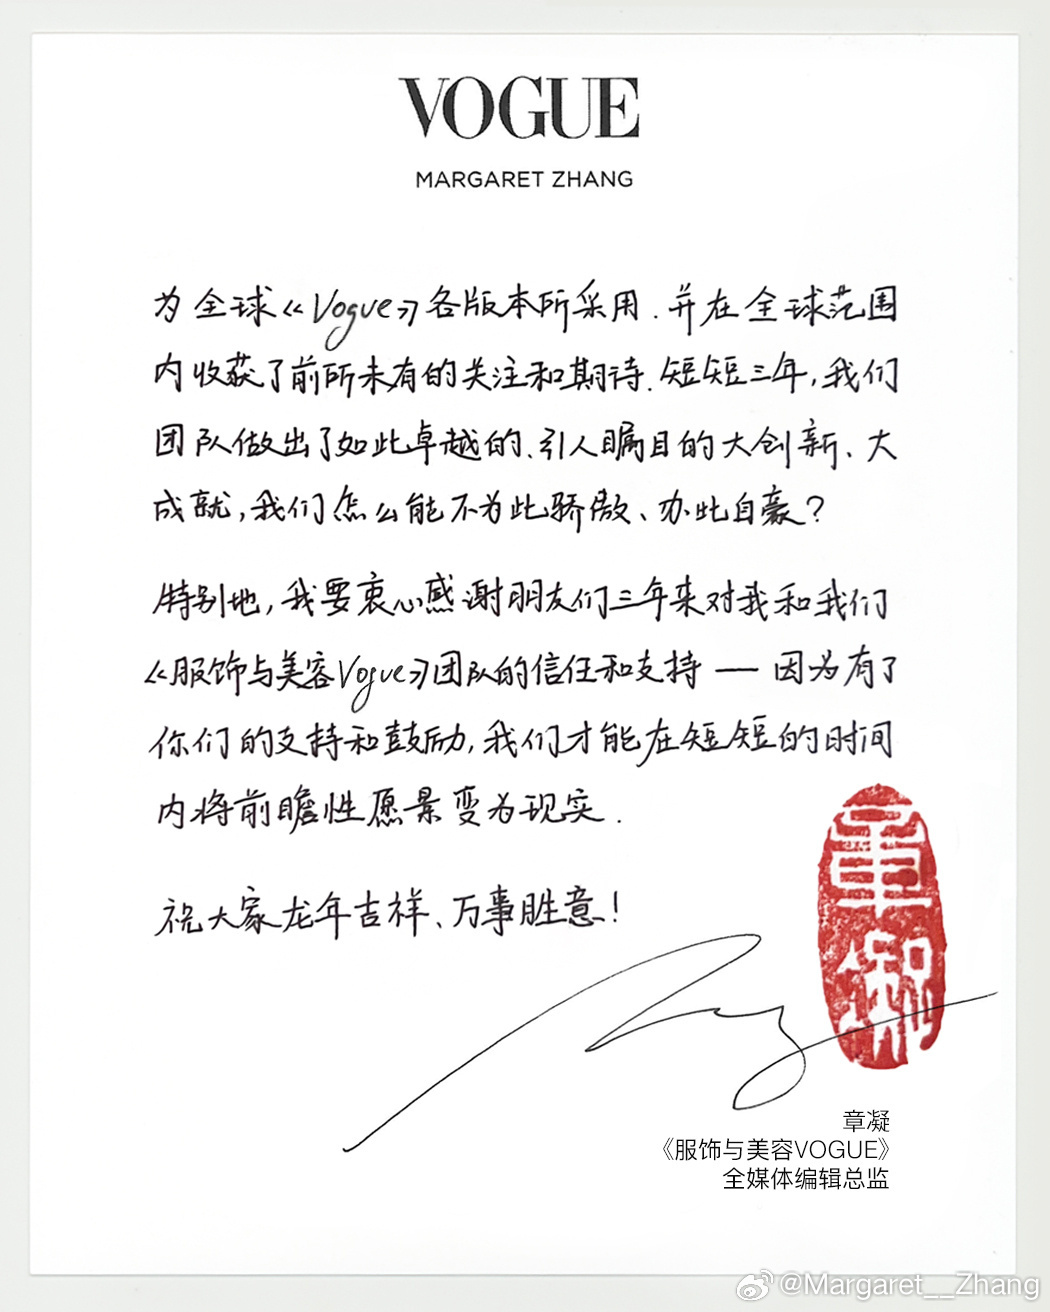 VOGUE
MARGARET ZHANG
为全球《Vogue》各版本所采用.并在全球范围
内收获了前所未有的关注和期待.短短三年,我们
团队做出了如此卓越的、引人瞩目的大创新、大
成就,我们怎么能不为此骄傲、为此自豪?
特别地,我要衷心感谢朋友们三年来对我和我们
《服饰与美容Vogue》团队的信任和支持——因为有了
你们的支持和鼓励,我们才能在短短的时间
内将前瞻性愿景变为现实.
祝大家龙年吉祥、万事胜意!
章凝
章凝
《服饰与美容VOGUE》
全媒体编辑总监
@Margaret__Zhang